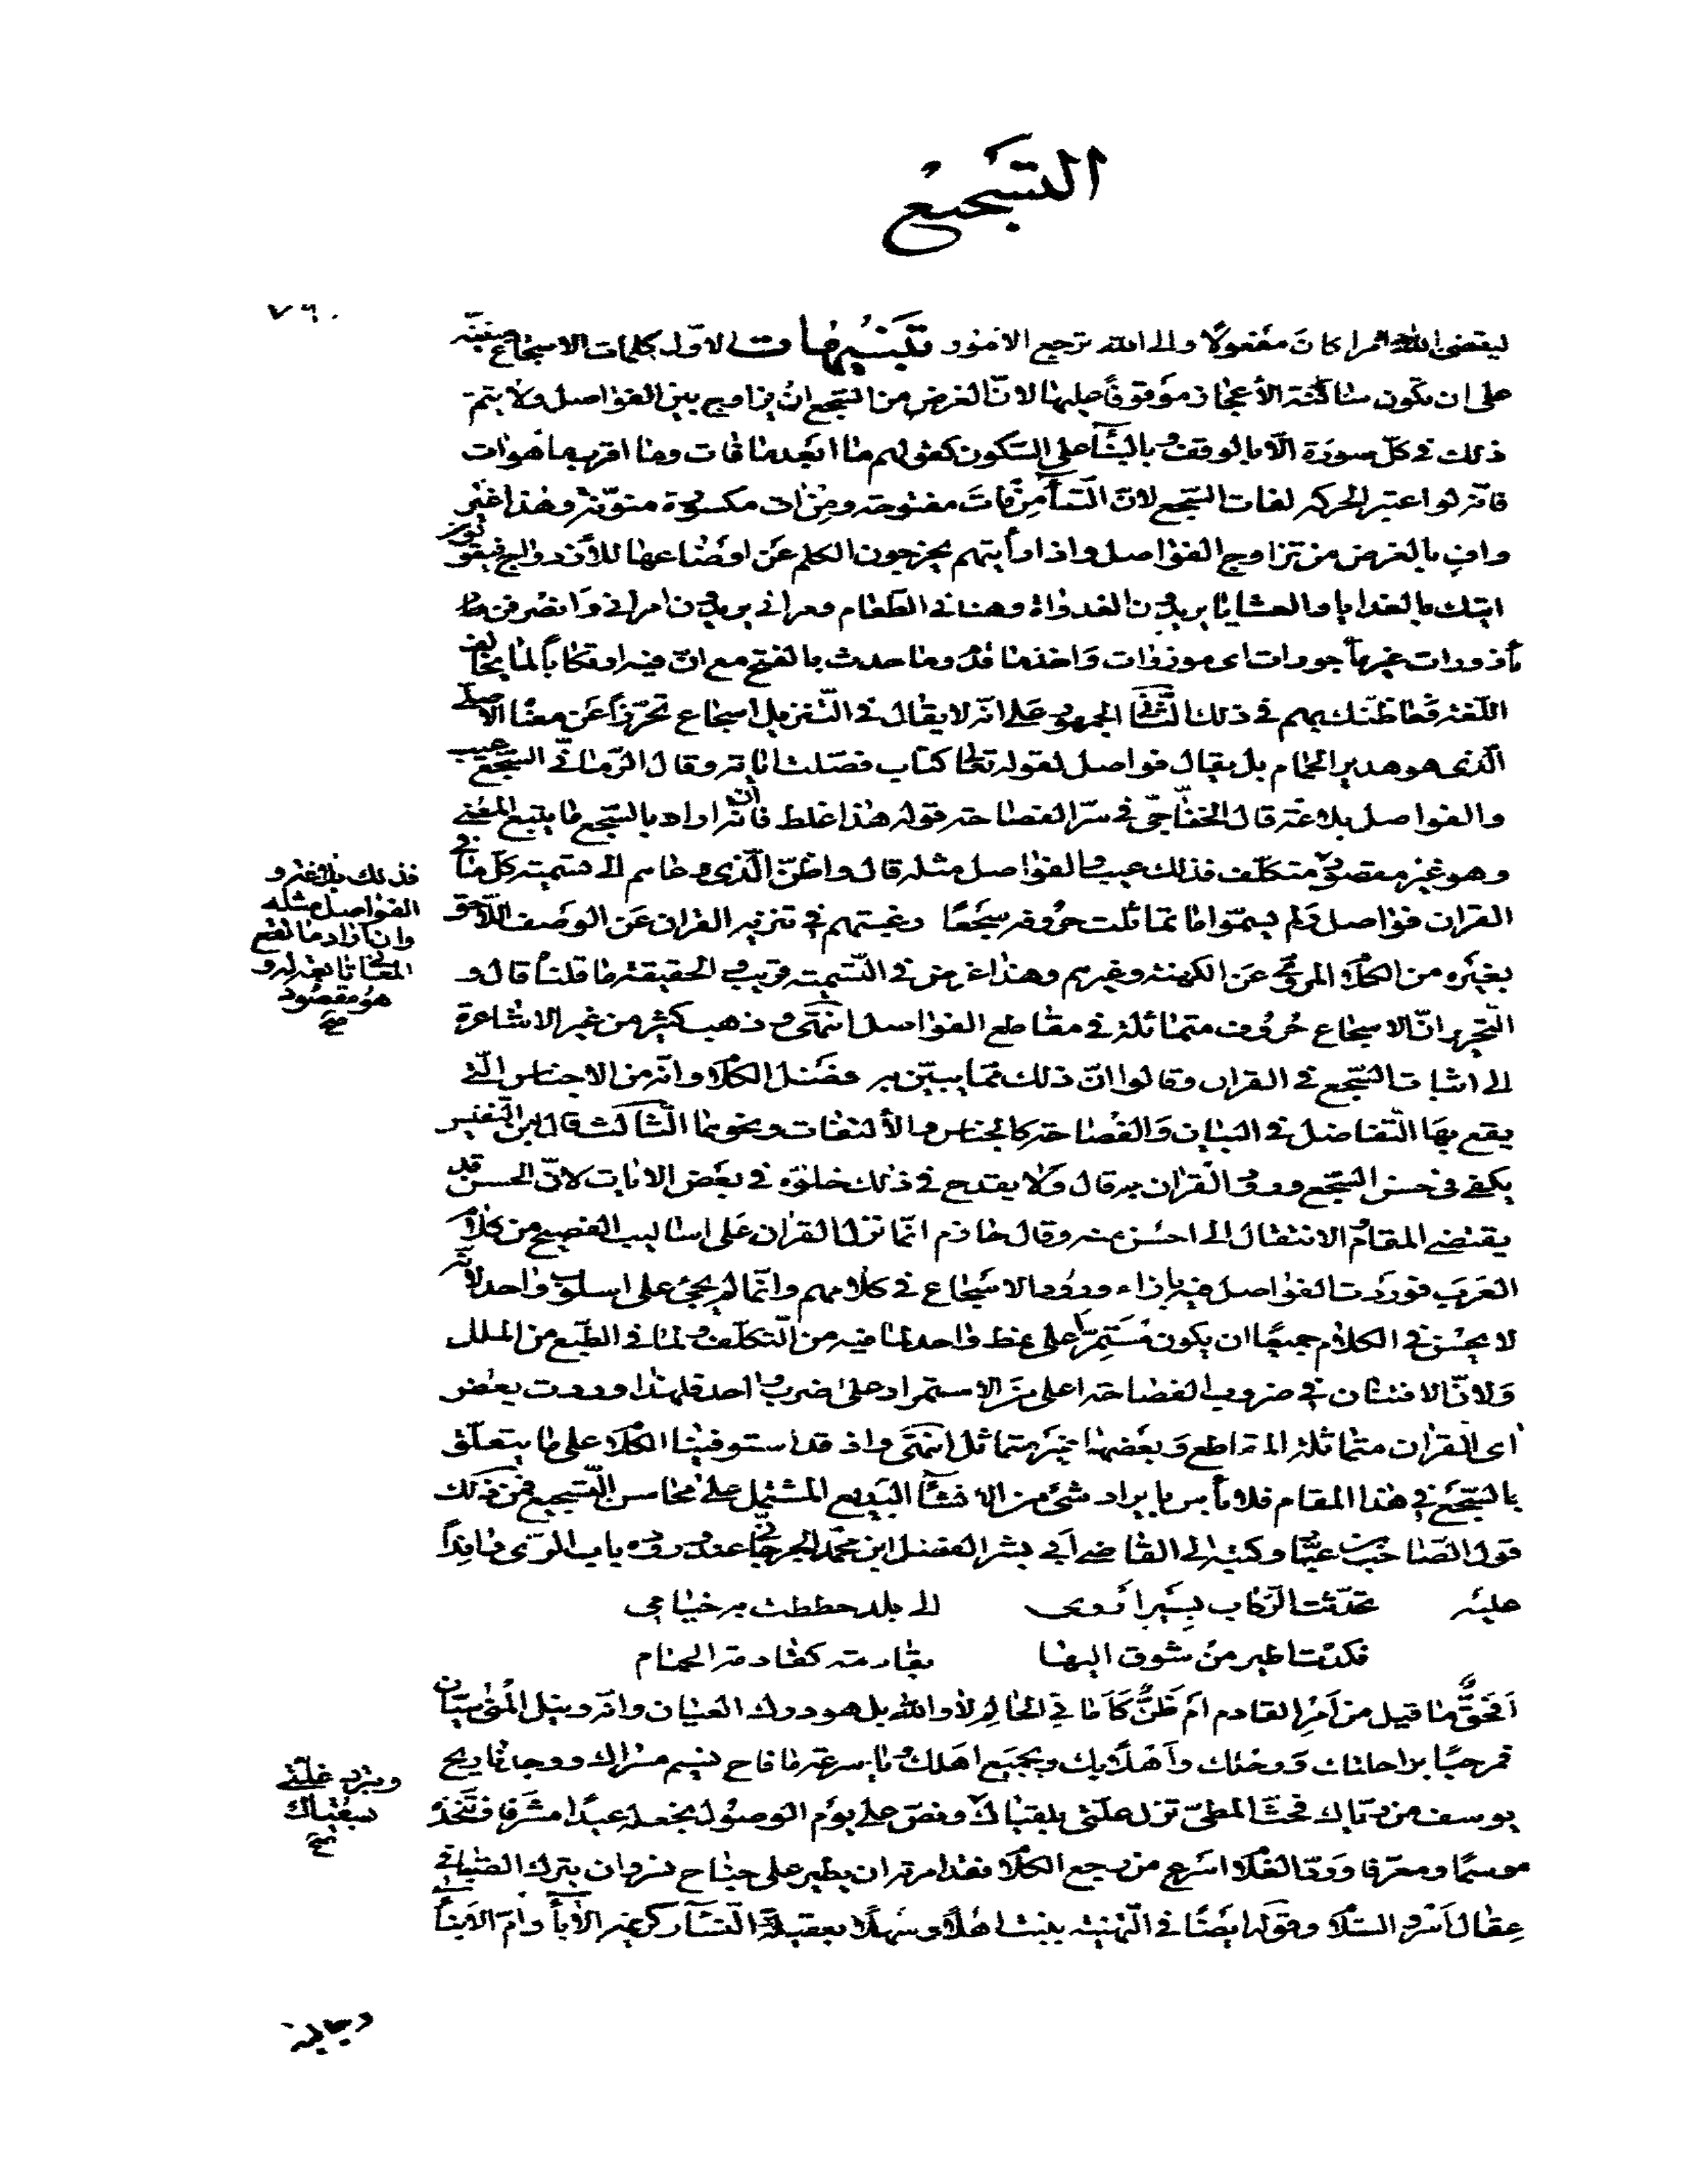 التسجيع
٧٦٠
ليقضى الله امرا كان مفعولا والى الله ترجع الامور تنبيهات الاول كلمات الاسجاع مبنيّة
على ان تكون ساكنة الأعجاز موقوفًا عليها لانّ الغرض من السّجع ان يزاوج بين الفواصل ولا يتمّ
ذلك فى كلّ صورة الّا بالوقف وبالبناء على السّكون كقولهم ما ابعد ما فات وما اقرب ما هوات
فانّه لو اعتبر الحركه لفات السّجع لانّ التّاء من فات مفتوحة ومن ات مكسورة منوّنة وهذا غير
واف بالغرض من تزاوج الفواصل واذا رأيتهم يخرجون الكلم عن اوضاعها للأزدواج فيقولون
اتيك بالغدايا والعشايا يريدون الغدواة وهنانى الطّعام ومرانى يريدون امرانى وانصرفن ما
مأزورات غير مأجورات اى موزورات واخذ ما قدم وما حدث بالفتح مع انّ فيه ارتكابًا لما يخالف
اللّغة فما ظنّك بهم فى ذلك الثّانى الجمهور على انّه لا يقال فى التّنزيل اسجاع تحرّزًا عن معنا الاصلى
الّذى هو هدير الحمام بل يقال فواصل لقوله تعالى كتاب فصّلت اياته وقال الرّمّانّى السّجع عيب
والفواصل بلاغة قال الخفّاجىّ فى سرّ الفصاحة قوله هذا غلط فانّه ان اراد بالسّجع ما يتبع المعنى
وهو غير مقصود متكلّف فذلك عيب والفواصل مثله قال واظنّ الّذى دعاهم الى تسمية كلّ ما فى
فذلك بلاغة و
الفواصل مثله
وان اراد ما تقع
المعانى تابعة له و
هو مقصود
صح
القران فواصل ولم يسمّوا ما تماثلت حروفه سجعًا رغبتهم فى تنزيه القران عن الوصف اللّاحق
بغيره من الكلام المروىّ عن الكهنة وغيرهم وهذا غرض فى التّسمية قريب والحقيقة ما قلنا قال و
التّحرير انّ الاسجاع حروف متماثلة فى مقاطع الفواصل انتهى وذهب كثير من غير الاشاعرة
الى اثبات السّجع فى القران وقالوا انّ ذلك ممّا يبيّن به فضل الكلام وانّه من الاجناس الّتى
يقع بها التّفاضل فى البيان والفصاحة كالجناس والألتفات ونحوهما الثّالث قال ابن النّفيس
يكفى فى حسن السّجع ورود القران به قال ولا يقدح فى ذلك خلوّه فى بعض الايات لانّ الحسن قد
يقتضى المقام الانتقال الى احسن منه وقال حازم انّما نزل القران على اساليب الفصيح من كلام
العرب فوردت الفواصل فيه بازاء ورود الاسجاع فى كلامهم وانّما لم يجئ على اسلوب واحد لانّه
لا يحسن فى الكلام جميعًا ان يكون مستمرّا على نمط واحد لما فيه من التّكلّف ولما فى الطّبع من الملل
ولانّ الافتنان فى ضروب الفصاحة اعلى من الاستمرار على ضرب واحد فلهذا وردت بعض
اى القران متماثلة المقاطع وبعضها غير متماثل انتهى واذ قد استوفينا الكلام على ما يتعلّق
بالسّجع فى هذا المقام فلا بأس بايراد شئ من الانشاء البديع المشتمل على محاسن التّسجيع فمن ذلك
قول الصّاحب بن عبّاد وكتبه الى القاضى أبى بشر الفضل ابن محمّد الجرجانى عند وروده باب الرّى وافدًا
عليه تحدّثت الرّكاب بسير أروى الى بلد حططت به خيامى
فكدت اطير من شوق اليها بقادمة كقادمة الحمام
أفحقّ ما قيل من امر القادم ام ظنّ كامانى الحالم لا والله بل هو درك العيان وانّه ونيل المنى سيّان
فمرحبًا براحلتك ورحلك وأهلًا بك وبجميع اهلك يا سرعة ما فاح نسيم مسراك ووجدنا ريح
ويزد غلّتى
بسقياك
صح
يوسف من ريّاك فحثّ المطىّ تزل علّتى بلقياك ونصّ على يوم الوصول نجعله عيدًا مشرّفا ونتّخذه
موسمًا ومعرّفا وردّ الغلام اسرع من رجع الكلام فقد امرته ان يطير على جناح نسر وان يترك الصّبا فى
عقال اسر والسّلام وقوله ايضًا فى التّهنية ببنت اهلًا وسهلًا بعقيلة النّساء كريمة الاباء وامّ الابناء